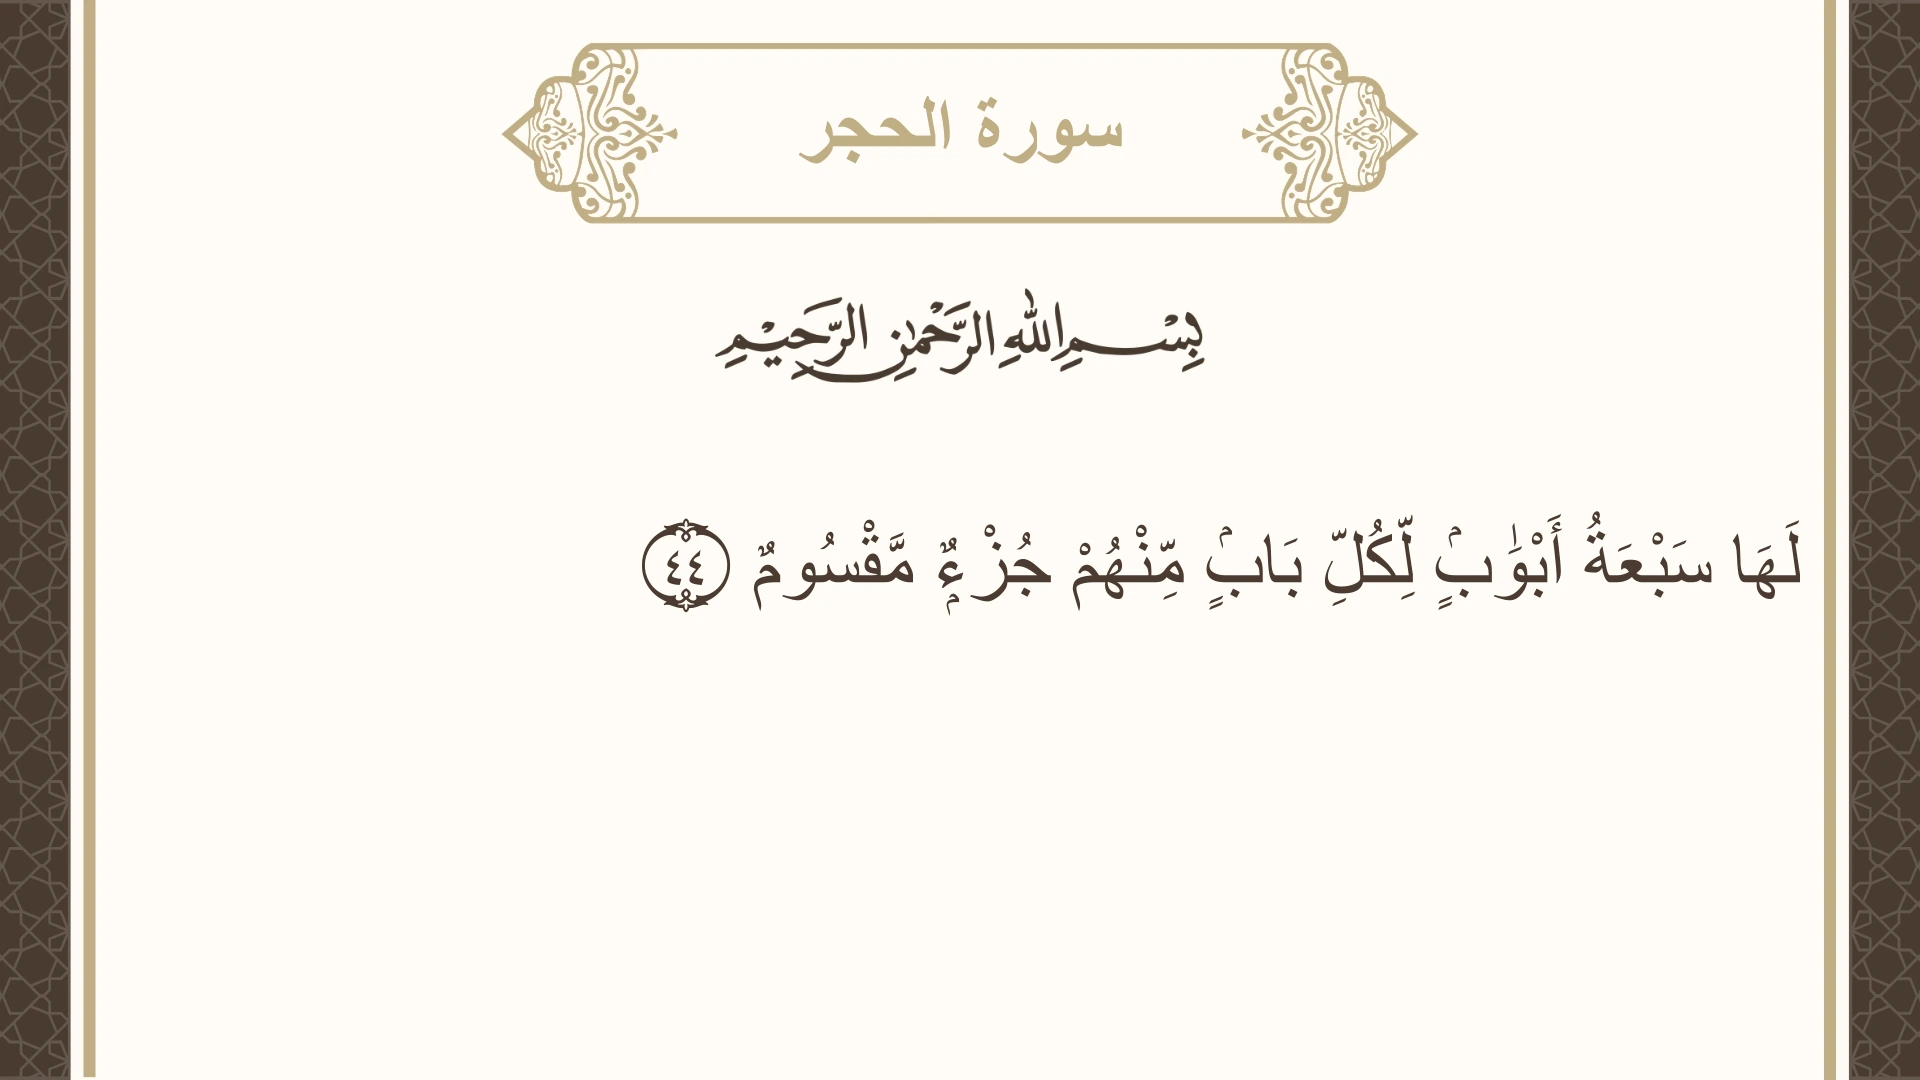 سورة الحجر
بِسْمِ اللهِ الرَّحْمٰنِ الرَّحِيْمِ
لَهَا سَبْعَةُ أَبْوَٰبٍۢ لِّكُلِّ بَابٍۢ مِّنْهُمْ جُزْءٌۭ مَّقْسُومٌ ٤٤